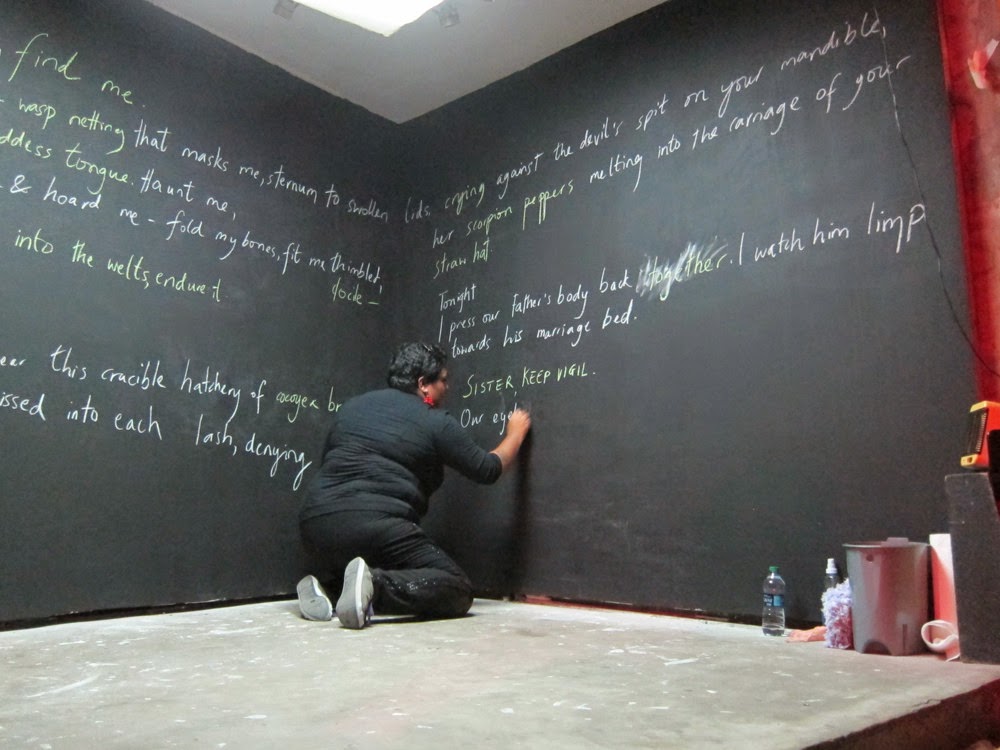 find me.
wasp netting that masks me, sternum to swollen
ddess tongue. Haunt me,
& hoard me – fold my bones, fit me thimbled,
docile –
into the welts, endure it.
this crucible hatchery of cocoyea br
issed into each lash, denying
lids, crying against the devil's spit on your mandible,
her scorpion peppers melting into the carriage of your
straw hat.
Tonight
I press our father's body back together. I watch him limp
towards his marriage bed.
SISTER KEEP VIGIL.
Our eye